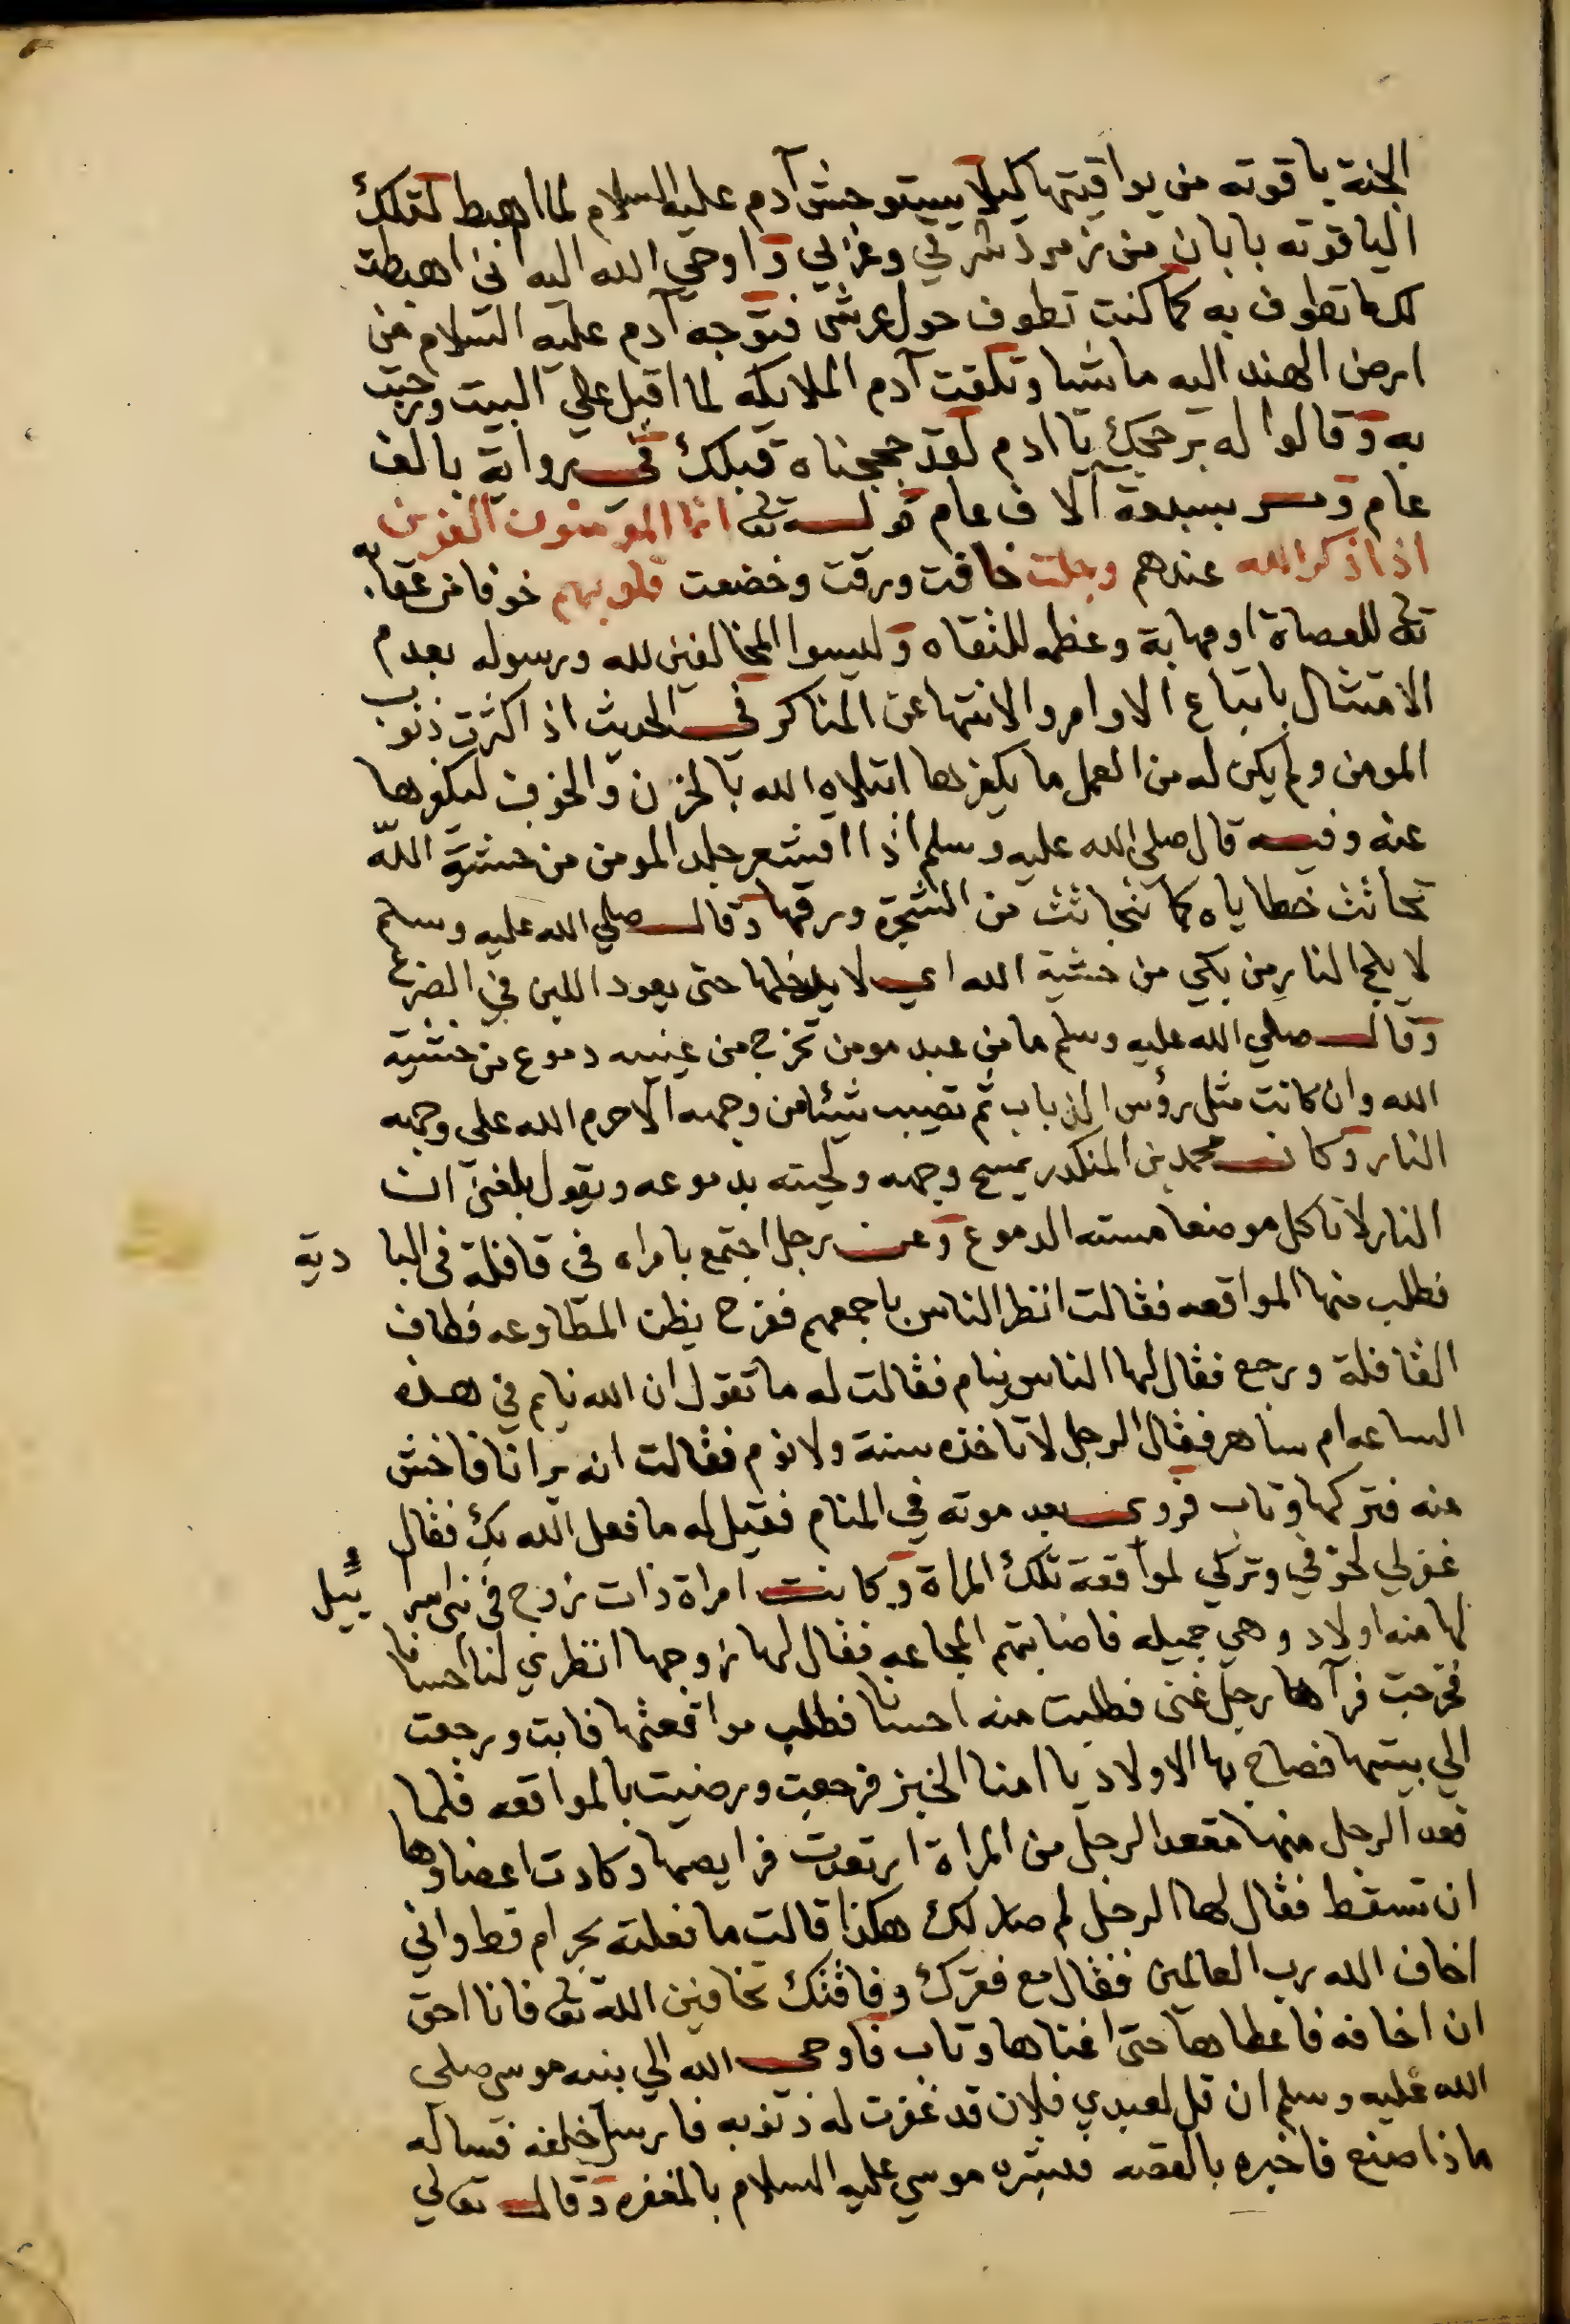 الجنة ياقوته من يواقيتها كيلا يستوحش آدم عليه السلام لما اهبط لتلك
الياقوته بابان من زمرد شرقي وغربي واوحي الله اليه اني اهبطت
لك ما تطوف به كما كنت تطوف حول عرشي فتوجه آدم عليه السلام من
ارض الهند اليه ماشيا وتلقت آدم الملايكه لما اقبل علي البيت ورحبت
به وقالوا له بر حجك يا ادم لقد حججناه قبلك في رواية بالف
عام ومر بسبعة آلاف عام قوله تعالى انما المومنون الذين
اذا ذكر الله عندهم وجلت خافت ورقت وخضعت قلوبهم خوفا من عقابه
تعالى للعصاة او مهابة وعظمه للثقاه وليسوا المخالفين لله ورسوله بعدم
الامتثال باتباع الاوامر والانتها عن المناكر في الحديث اذ اكثرت ذنوب
المومن ولم يكن له من العمل ما يكفرها ابتلاه الله بالحزن والخوف ليكفرها
عنه وفيه قال صلي الله عليه وسلم اذا اقشعر جلد المومن من خشية الله
تحاثث خطاياه كما تتحاثث من الشجرة ورقها وقال صلي الله عليه وسلم
لا يلج النار من بكي من خشية الله اي لا يدخلها حتى يعود اللبن في الضرع
وقال صلي الله عليه وسلم ما من عبد مومن تخرج من عينيه دموع من خشية
الله وان كانت مثل رؤس الذباب ثم تصيب شيئا من وجهه الا حرم الله على وجهه
النار وكان محمد بن المنكدر يمسح وجهه ولحيته بدموعه ويقول بلغني ان
النار لا تاكل موضعا مسته الدموع وعن رجل اجتمع بامراه في قافلة في البادية
فطلب منها المواقعه فقالت انظر الناس باجمعهم ففرح يظن المطاوعه فطاف
القافلة ورجع فقال لها الناس نيام فقالت له ما تقول ان الله نايم في هذه
الساعه ام ساهر فقال الرجل لا تاخذه سنة ولا نوم فقالت انه يرانا فاخش
منه فتركها وتاب فروى بعد موته في المنام فقيل له ما فعل الله بك فقال
غفر لي لخوفي وتركي لمواقعة تلك المراة وكانت امراة ذات زوج في بني اسرائيل
لها منه اولاد وهي جميله فاصابتهم المجاعه فقال لها زوجها انظري لنا احسانا
فخرجت فرآها رجل غني فطلبت منه احسانا فطلب مواقعتها فابت ورجعت
الي بيتها فصاح بها الاولاد يا امنا الخبز فرجعت ورضيت بالمواقعه فلما
قعد الرجل منها مقعد الرجل من المراة ارتعدت فرايصها وكادت اعضاوها
ان تسقط فقال لها الرجل لم صار لك هكذا قالت ما فعلته بحرام قط واني
اخاف الله رب العالمين فقال مع فقرك وفاقتك تخافين الله تعالى فانا احق
ان اخافه فاعطاها حتى اغناها وتاب فاوحى الله الي نبيه موسى صلي
الله عليه وسلم ان قل لعبدي فلان قد غفرت له ذنوبه فارسل خلفه فساله
ماذا صنع فاخبره بالقصه فبشره موسي عليه السلام بالمغفره وقال تعالي